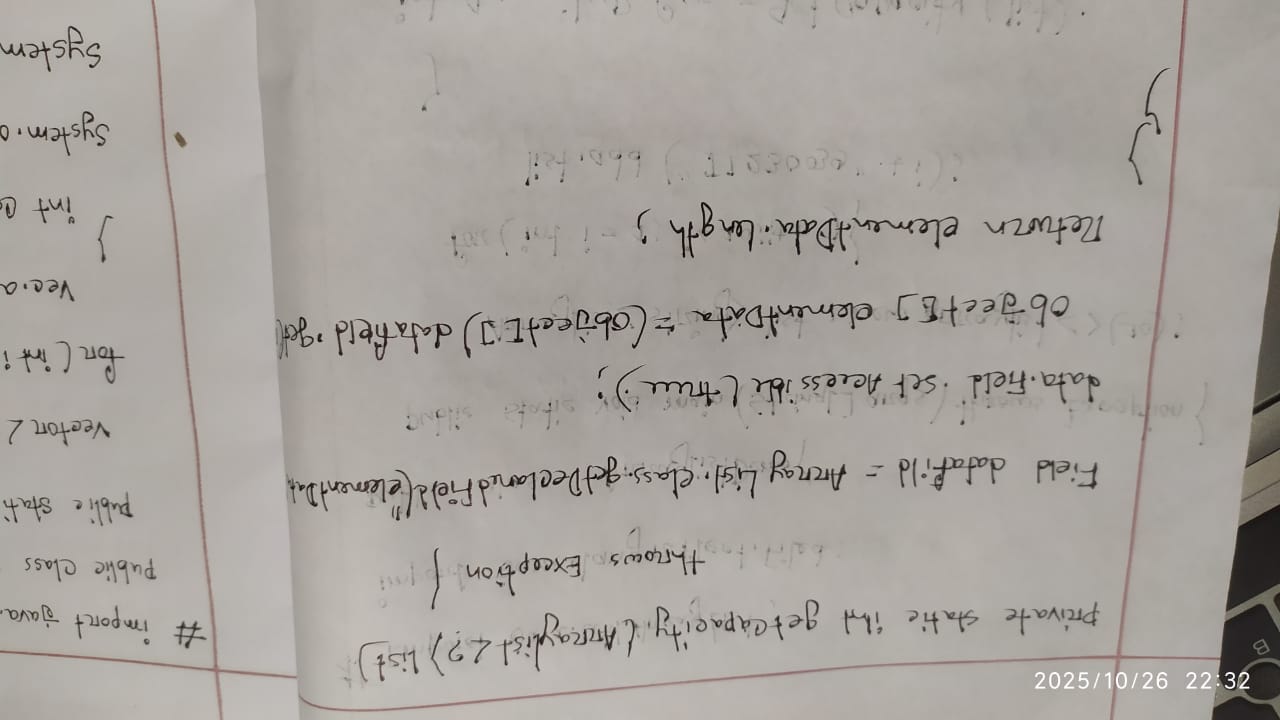 private static int getCapacity (ArrayList <?> List)
throws Exception {
Field dataFild = ArrayList.class.getDeclaredField("elementDat
data.Field.setAccessible (true);
Object[] elementData = (Object[]) dataField.get(
Return elementData.length;
}
}
# import java.
public class
public stati
Vector <
for (int i
Vec.a
}
int
System.o
System
2025/10/26 22:32